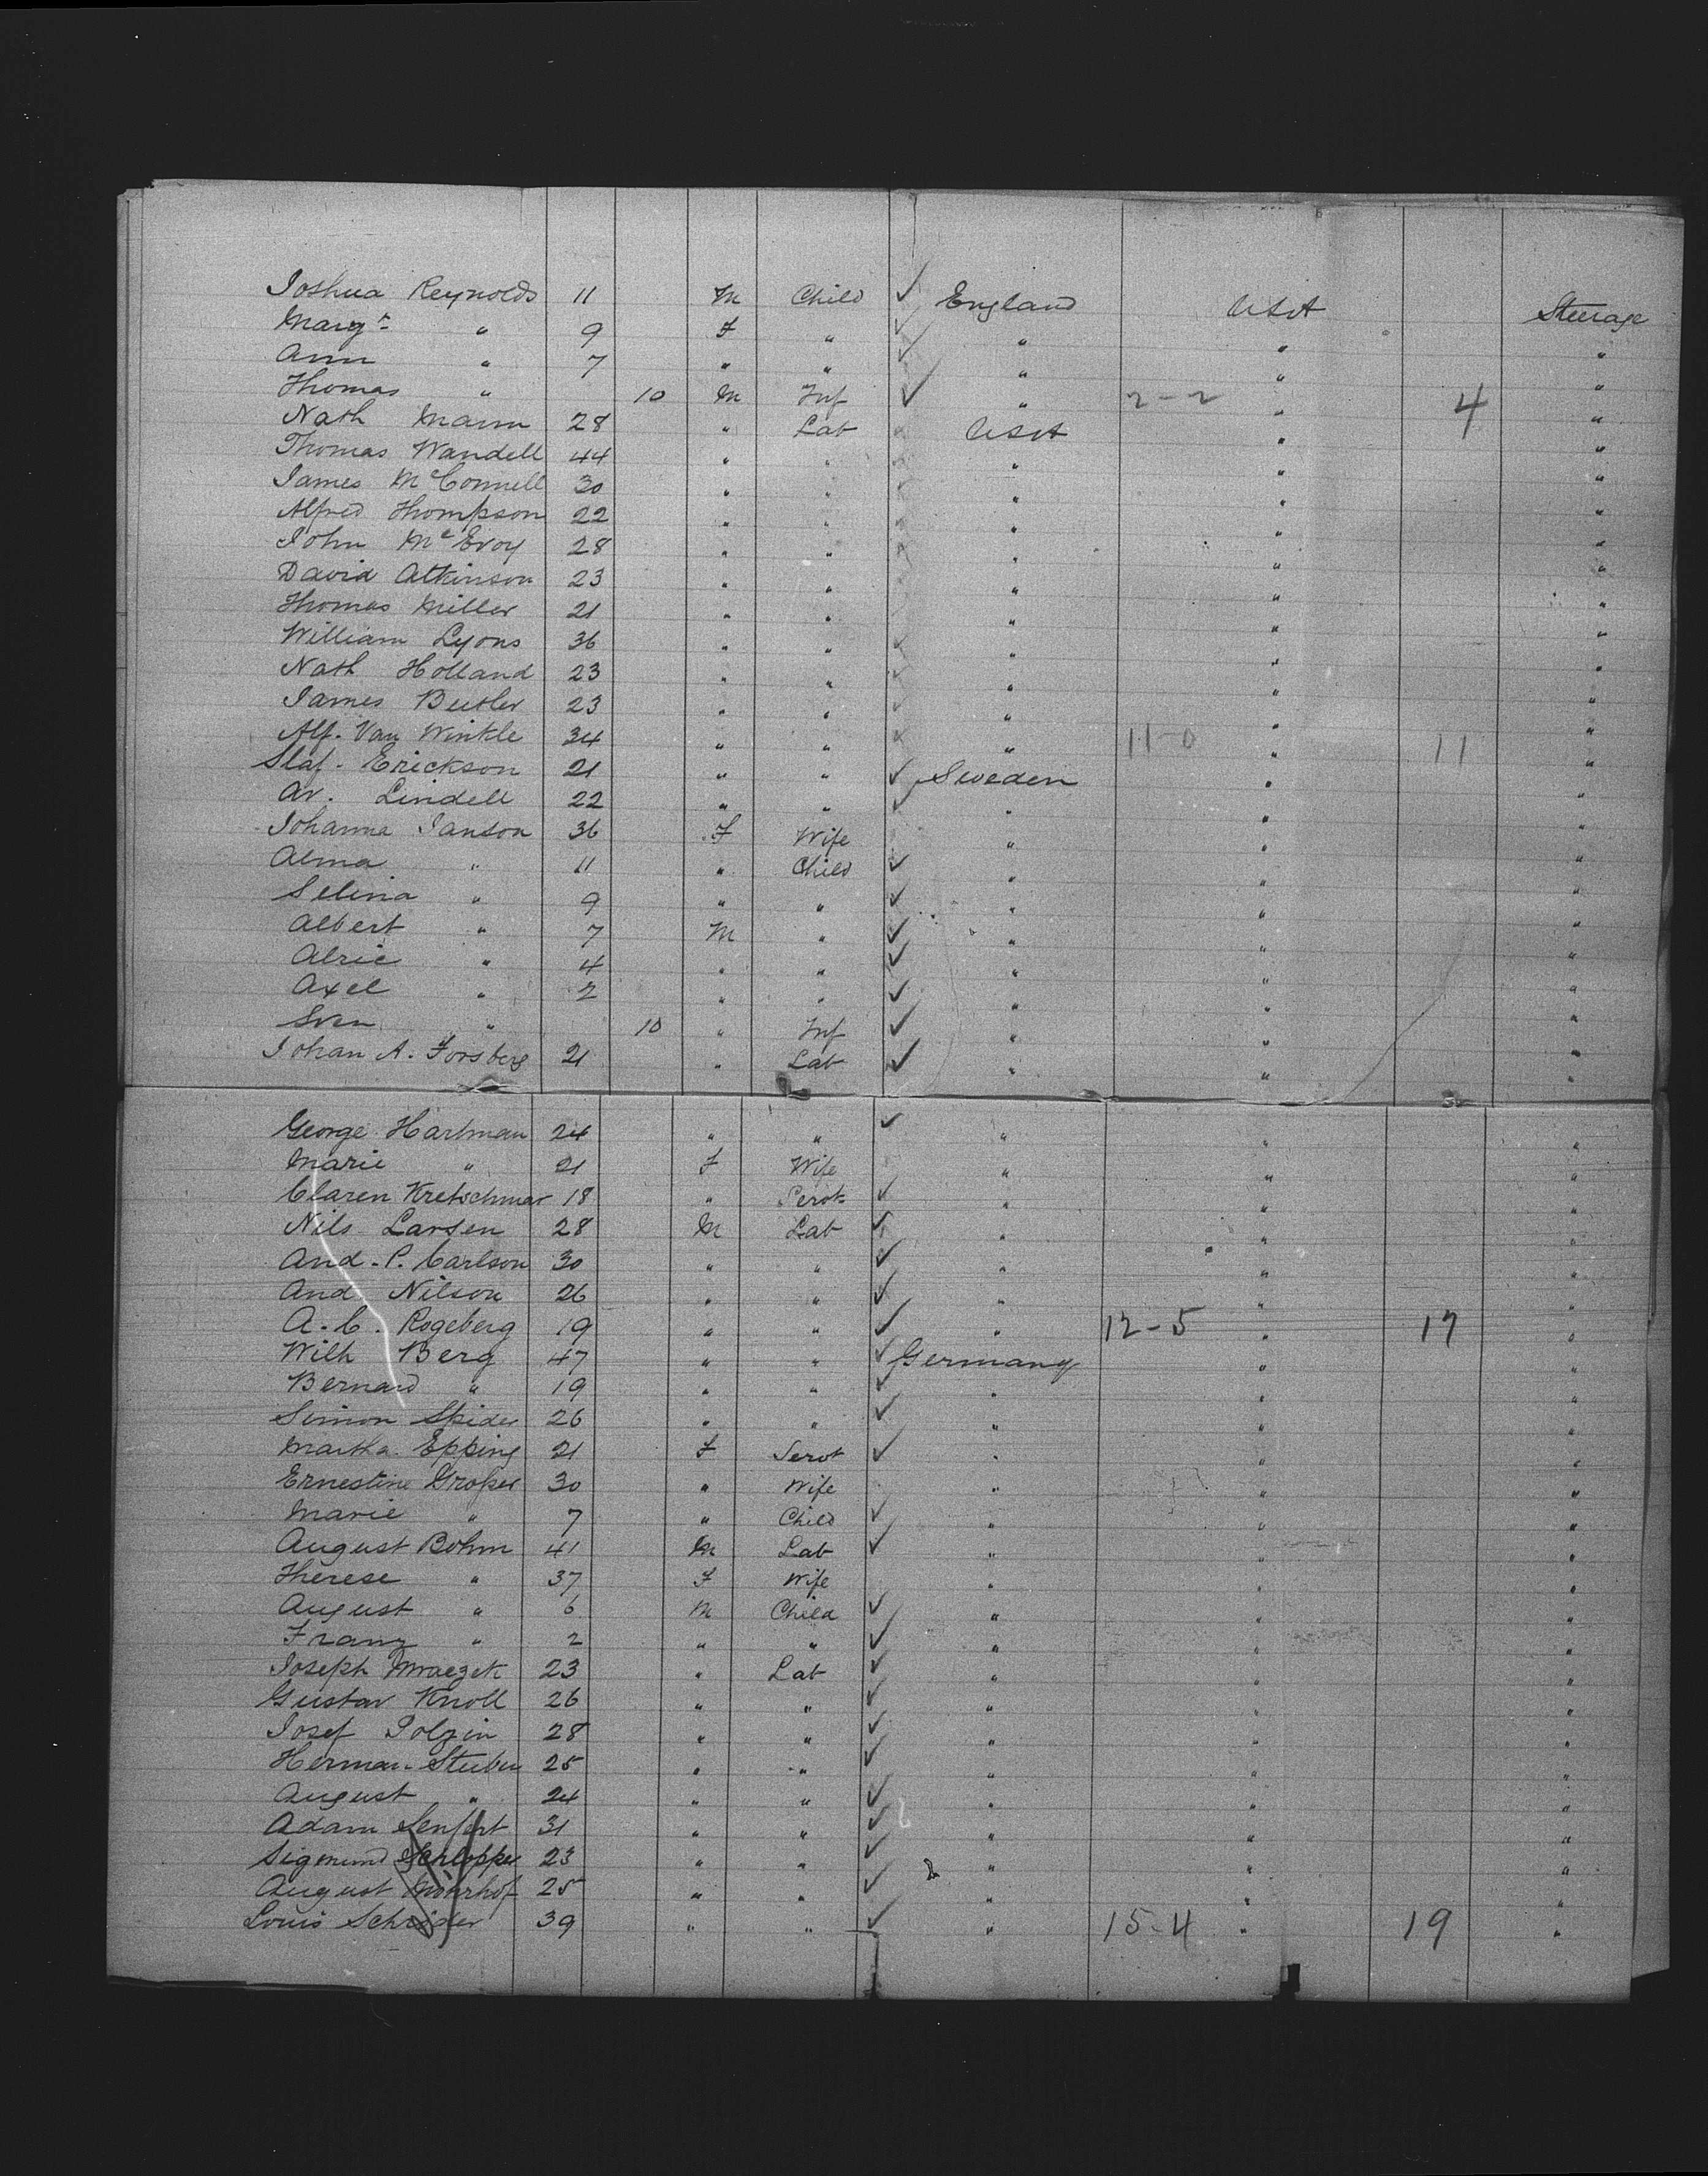 Joshua Reynolds 11 M Child ✓ England USA Steerage
Margt " 9 F " ✓ " " "
Ann " 7 " " ✓ " " "
Thomas " 10 M Inf ✓ " 2-2 " 4 "
Nath Mann 28 " Lab USA " "
Thomas Wandell 44 " " " " "
James McConnell 30 " " " " "
Alfred Thompson 22 " " " " "
John McEvoy 28 " " " " "
David Atkinson 23 " " " " "
Thomas Miller 21 " " " " "
William Lyons 36 " " " " "
Nath Holland 23 " " " " "
James Butler 23 " " " " "
Alf. Van Winkle 34 " " " 11-0 " 11 "
Slaf. Erickson 21 " " ✓ Sweden " "
Av. Lindell 22 " " ✓ " " "
Johanna Janson 36 F Wife " " "
Alma " 11 " Child ✓ " " "
Selina " 9 " " ✓ " " "
Albert " 7 M " ✓ " " "
Alric " 4 " " ✓ " " "
Axel " 2 " " ✓ " " "
Sven " 10 " Inf ✓ " " "
Johan A. Forsberg 21 " Lab ✓ " " "
George Hartman 24 " " ✓ " " "
Marie " 21 F Wife " " "
Claren Kretschmar 18 " Servt ✓ " " "
Nils Larsen 28 M Lab ✓ " " "
And. P. Carlson 30 " " ✓ " " "
And. Nilson 26 " " ✓ " " "
A. C. Rogeberg 19 " " ✓ " 12-5 " 17 "
Wilh Berg 47 " " ✓ Germany " "
Bernard " 19 " " ✓ " " "
Simon Spider 26 " " ✓ " " "
Martha Epping 21 F Servt ✓ " " "
Ernestine Groper 30 " Wife " " "
Marie " 7 " Child ✓ " " "
August Bohm 41 M Lab ✓ " " "
Therese " 37 F Wife " " "
August " 6 M Child ✓ " " "
Franz " 2 " " ✓ " " "
Joseph Mraczek 23 " Lab ✓ " " "
Gustav Knoll 26 " " ✓ " " "
Josef Polzin 28 " " ✓ " " "
Herman 25 " " ✓ " " "
August " 24 " " ✓ " " "
Adam Senfert 31 " " ✓ " " "
Sigmund 23 " " ✓ " " "
August Mohrhof 25 " " ✓ " " "
Louis Schröder 39 " " ✓ " 15-4 " 19 "